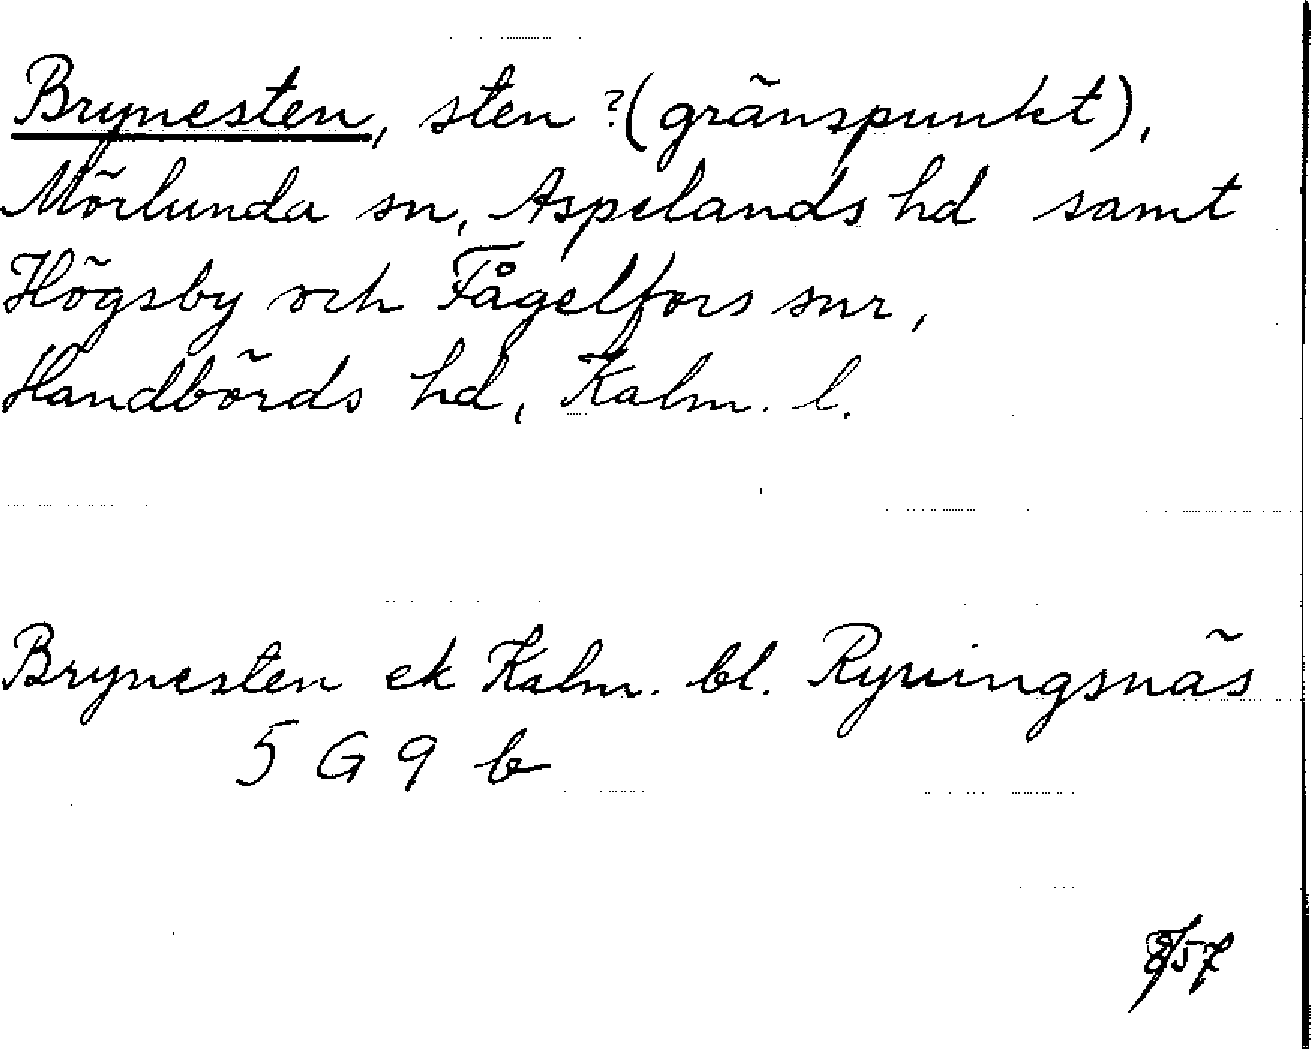 Brynesten, sten ? (gränspunkt),
Mörlunda sn, Aspelands hd samt
Högsby och Fågelfors snr,
Handbörds hd, Kalm. l.
Brynesten ek Kalm. bl. Ryningsnäs
5 G 9 b